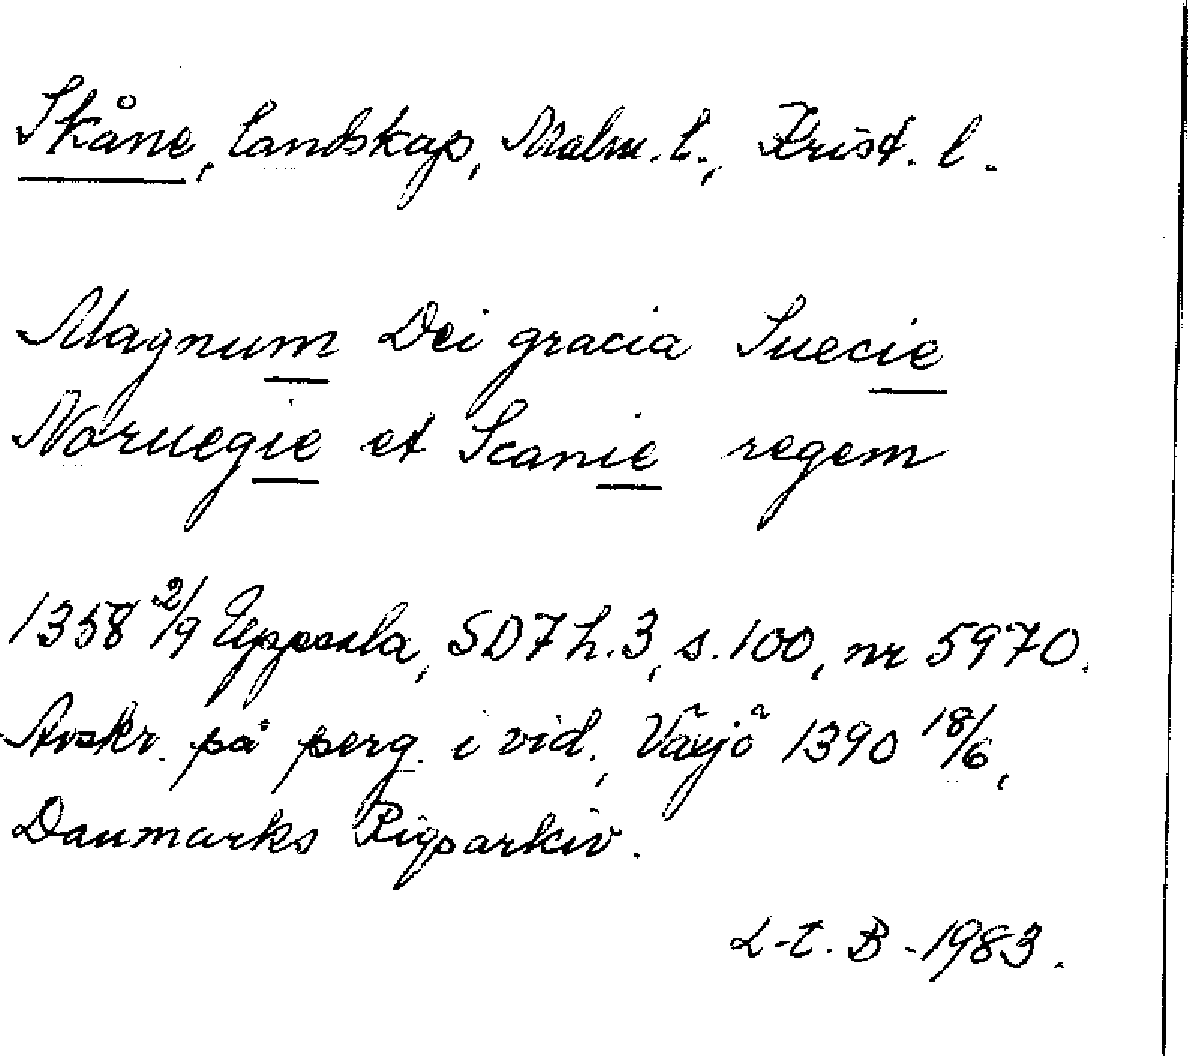 Skåne, landskap, Malm. l., Krist. l.
Magnum Dei gracia Suecie
Noruegie et Scanie regem
1358 2/9 Uppsala, SD7 h. 3, s. 100, nr 5970.
Avskr. på perg. i vid., Växjö 1390 18/6,
Danmarks Rigsarkiv.
L-t. B -1983.